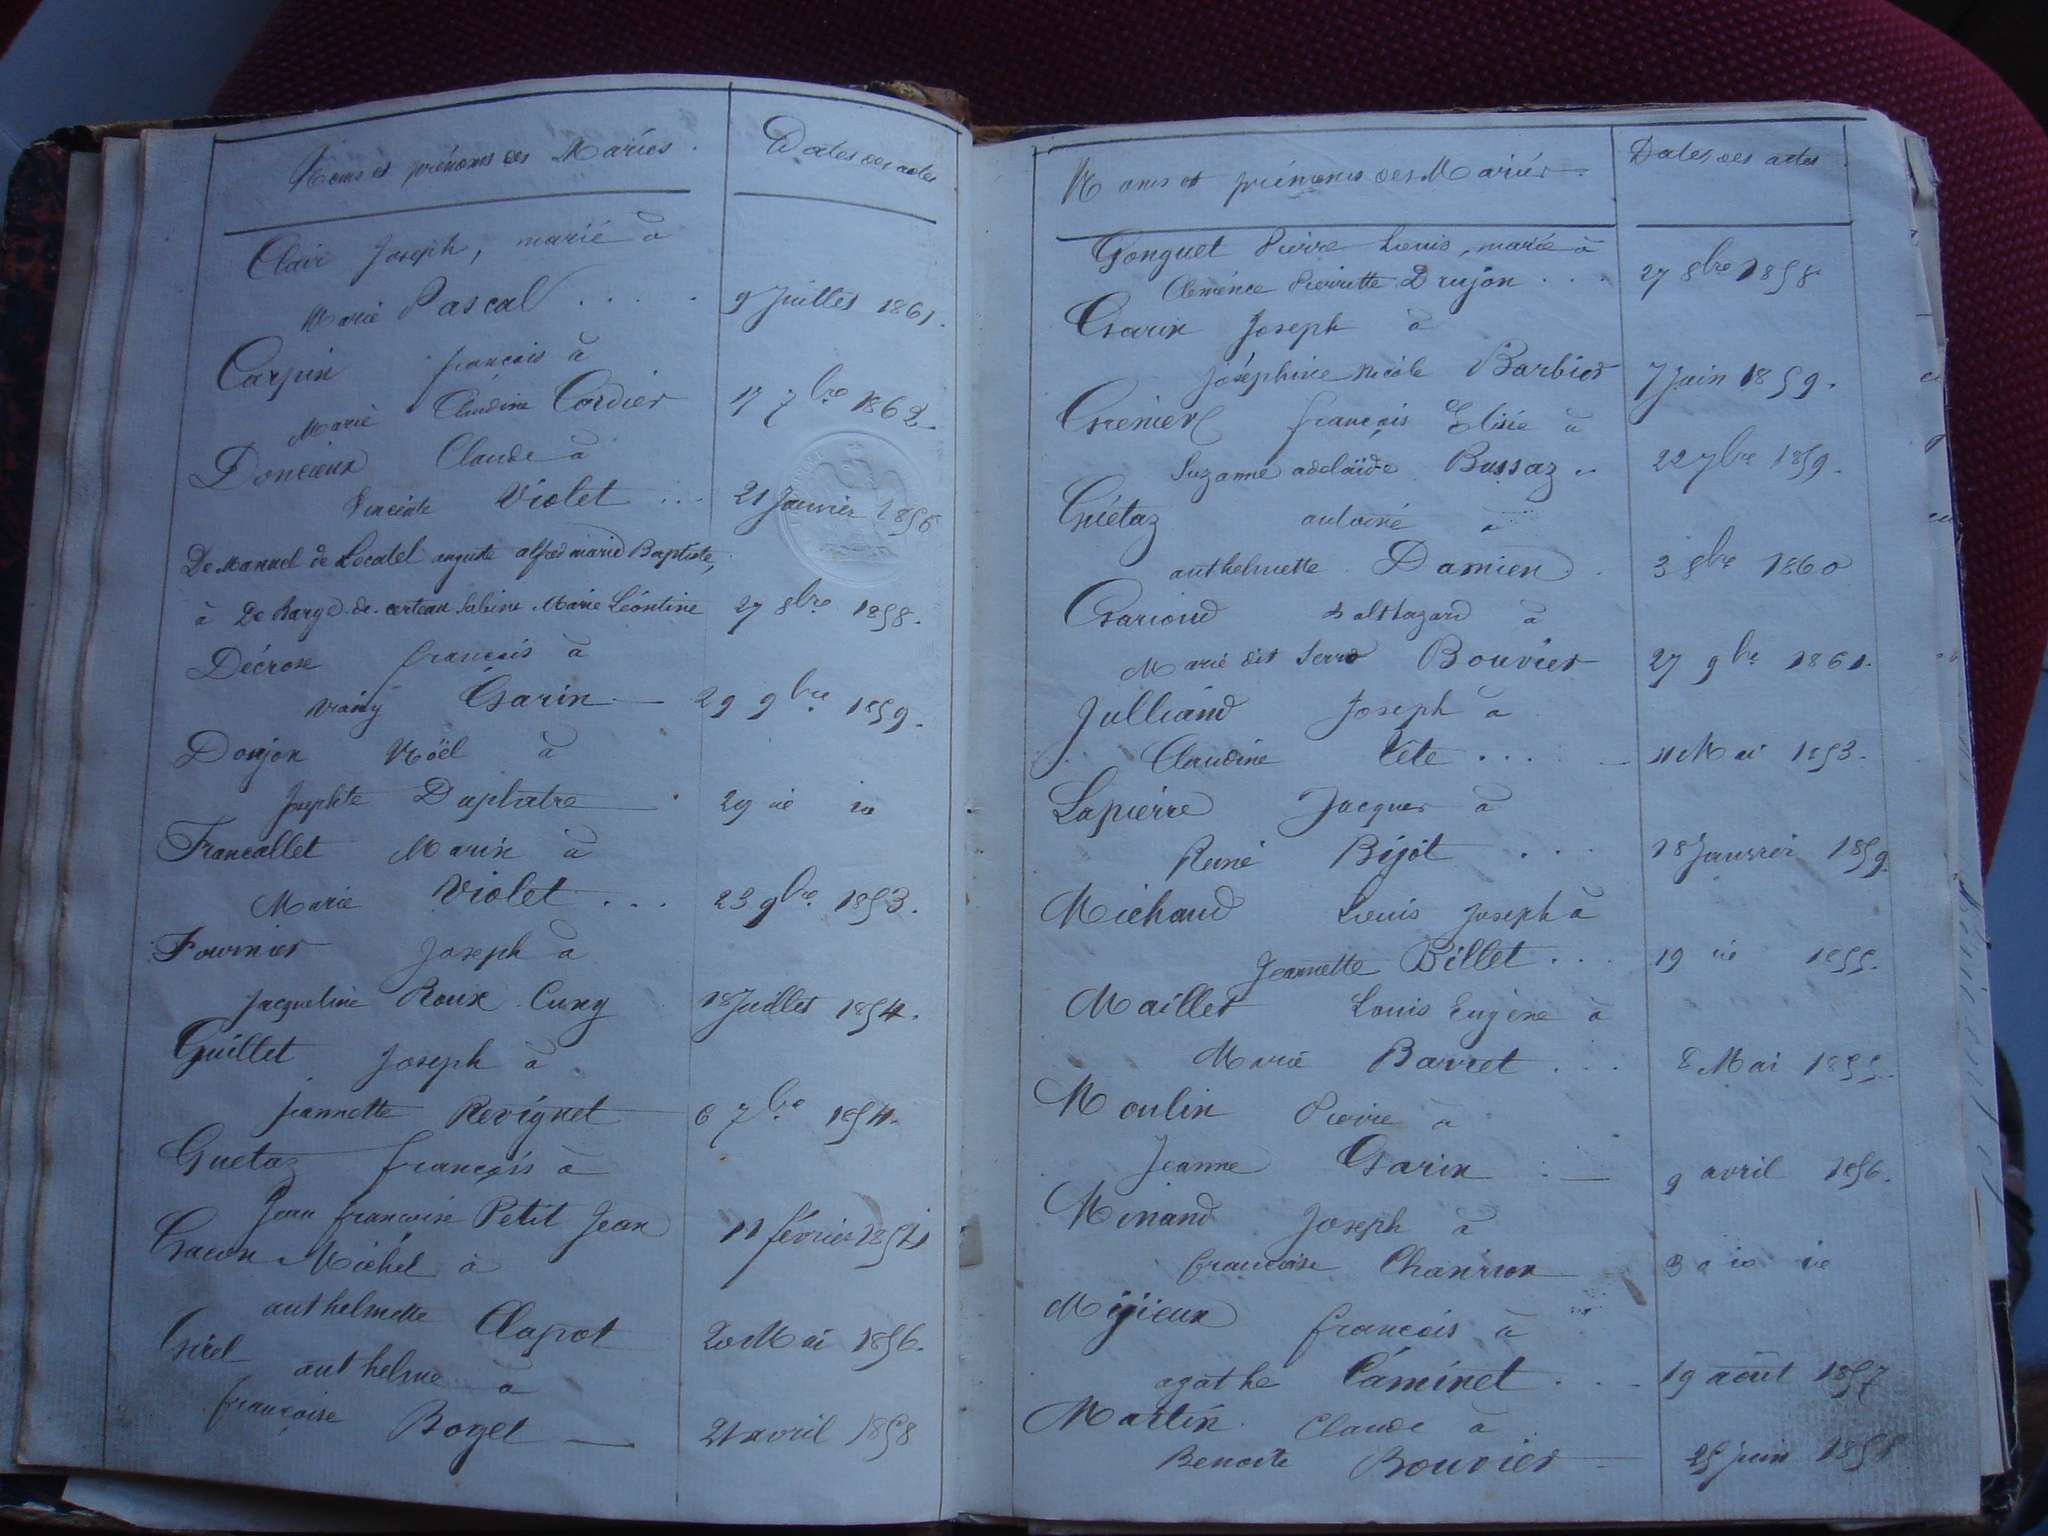 Noms et prénoms des Mariés. Dates des actes
Clair Joseph, marié à
Marie Pascal . . . . . 9 Juillet 1861.
Carpin françois à
Marie Claudine Cordier 17 7bre 1862
Doncieux Claude à
Vincente Violet . . . 21 Janvier 1856
De Manuel de Locatel auguste alfred marie Baptiste,
à De Barge de certeau Sabine Marie Léontine 27 8bre 1858.
Décrose françois à
Garin — 29 9bre 1859.
Donjon Noël à
Josephte Duplatre 29 id id
Francallet Marin à
Marie Violet . . . 23 9bre 1853.
Fournier Joseph à
Jacqueline Roux Cuny 18 Juillet 1854.
Guillet Joseph à
Jeannette Revignet 6 7bre 1854.
Guetaz françois à
Jean françoise Petit Jean 11 février 1854
Gacon Michel à
anthelmette Clapot 20 Mai 1856.
Girel anthelme à
françoise Boget — 21 avril 1858
Noms et prénoms des Mariés. Dates des actes
Gonguet Pierre Louis, marié à
Clémence Pierrette Drujon . . . 27 8bre 1858
Garin Joseph à
Joséphine Nicole Barbier 7 Juin 1859.
Grenier françois Elisé à
Suzanne adelaïde Bussaz .. 22 7bre 1859.
Guétaz antoine à
anthelmette Damien . 3 8bre 1860
Garioud Balthazard à
Marie dit Serre Bouvier 27 9bre 1861.
Julliand Joseph à
Claudine Tête . . . . 11 Mai 1853.
Lapierre Jacques à
René Bijot . . . 18 Janvier 1859.
Michaud Louis Joseph à
Jeannette Billet . . . 19 id 1855.
Maillet Louis Eugène à
Marie Barret . . . 8 Mai 1855.
Moulin Pierre à
Jeanne Garin . — 9 avril 1856.
Minand Joseph à
francoise Chanrion 30 id id
Mijieux françois à
agathe Caminet . . . 19 août 1857
Martin Claude à
Benoite Bouvier — 25 juin 1858